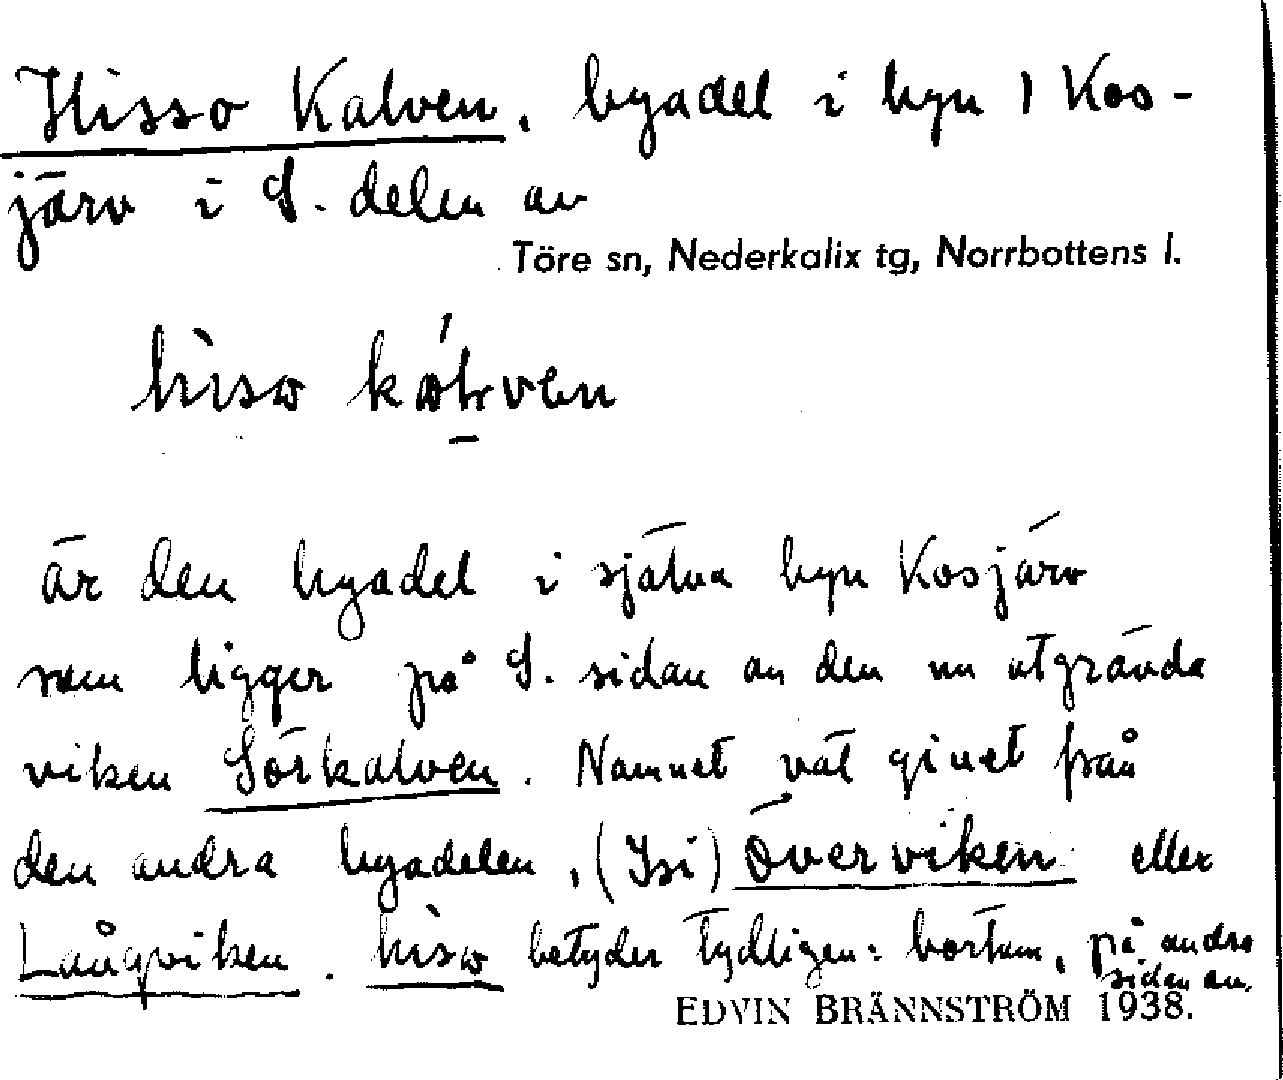 Hisso Kalven, byadel i byn 1 Kos-
järv i S. delen av
Töre sn, Nederkalix tg, Norrbottens l.
är den byadel i själva byn Kosjärv
som ligger på S. sidan av den nu utgrävda
viken Sörkalven. Namnet väl givet från
den andra byadelen, (Isi) Överviken eller
Långviken. hisω betyder tydligen: bortom, på andra
sidan av.
EDVIN BRÄNNSTRÖM 1938.